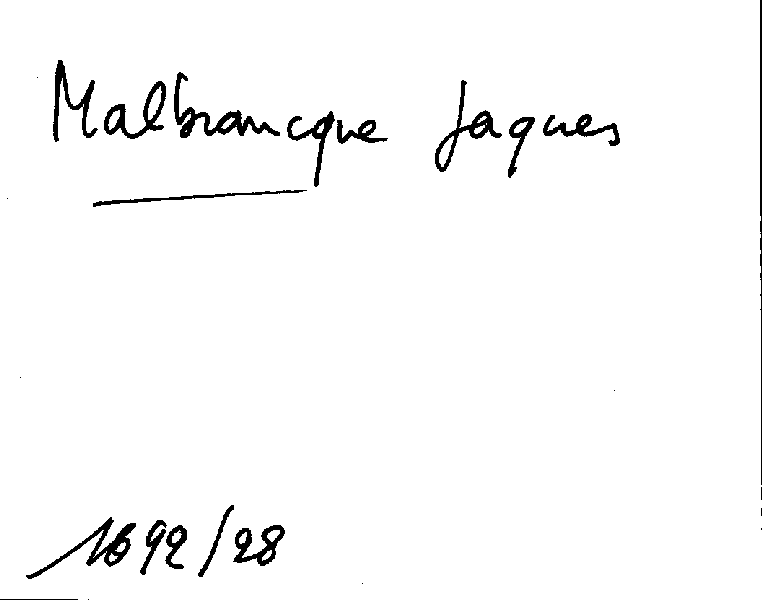 Malbrancque Jaques
1692/28